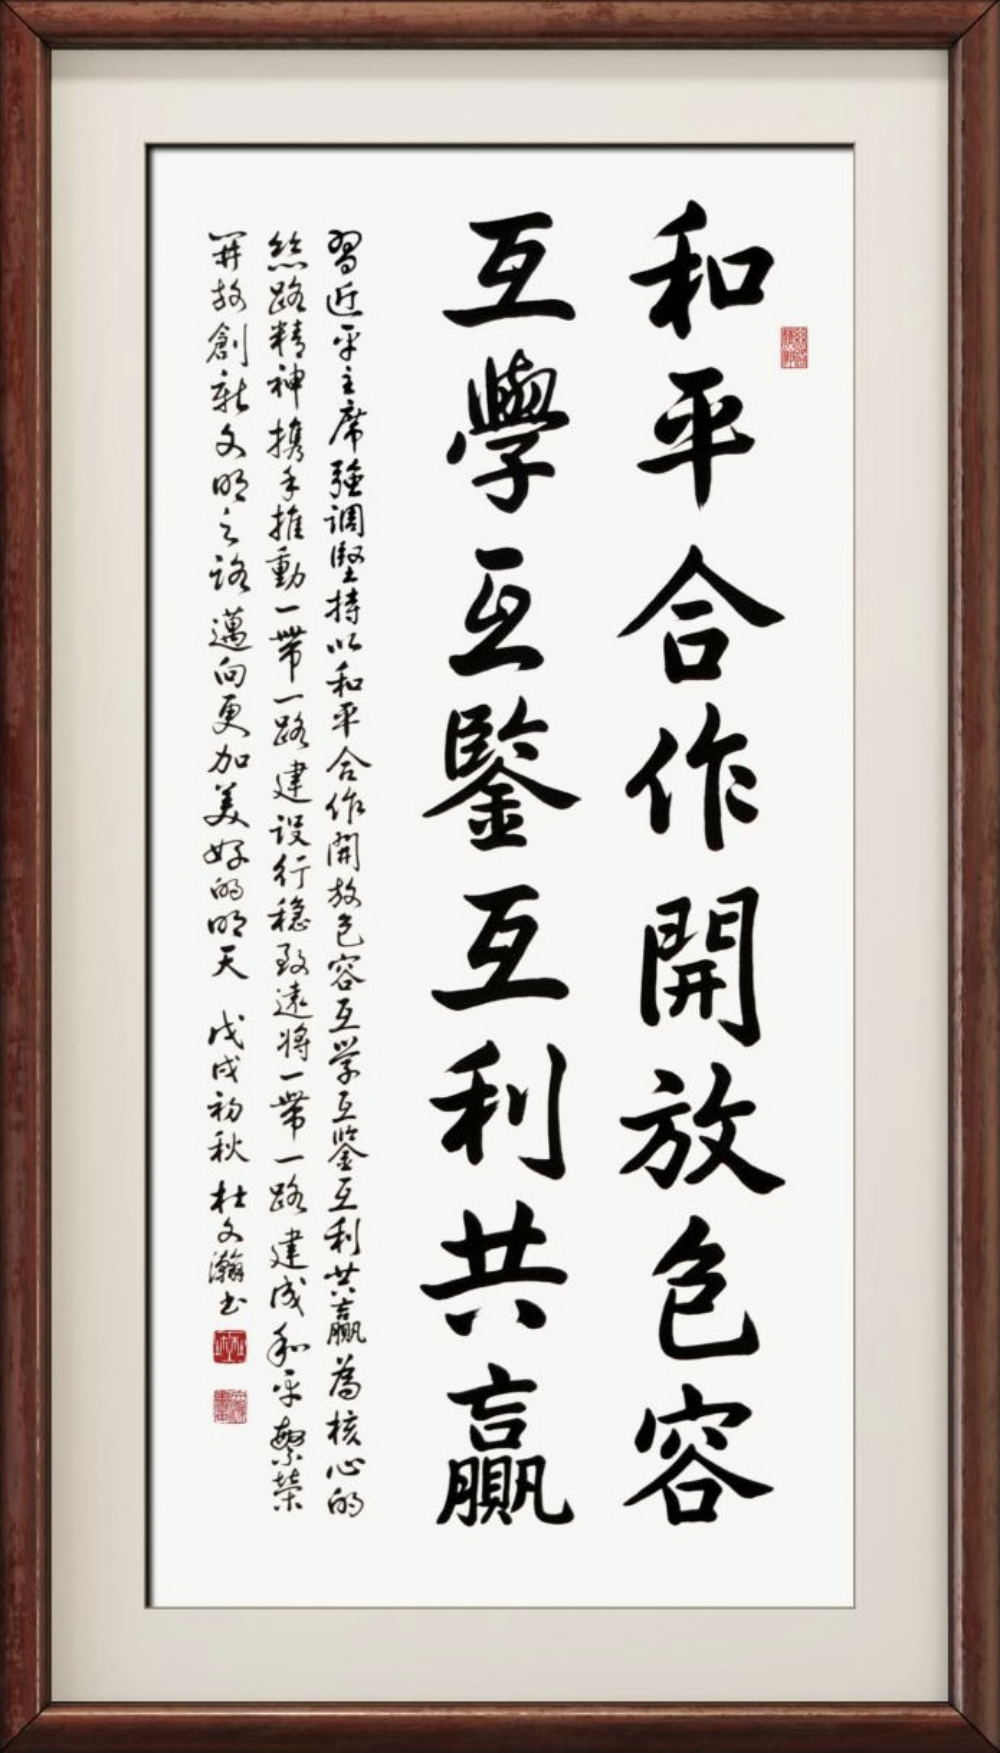 和平合作開放包容
互學互鑒互利共贏
習近平主席強调堅持以和平合作開放包容互学互鉴互利共赢為核心的
絲路精神携手推動一帶一路建设行穩致遠将一帶一路建成和平繁荣
開放創新文明之路邁向更加美好的明天 戊戌初秋 杜文瀚书